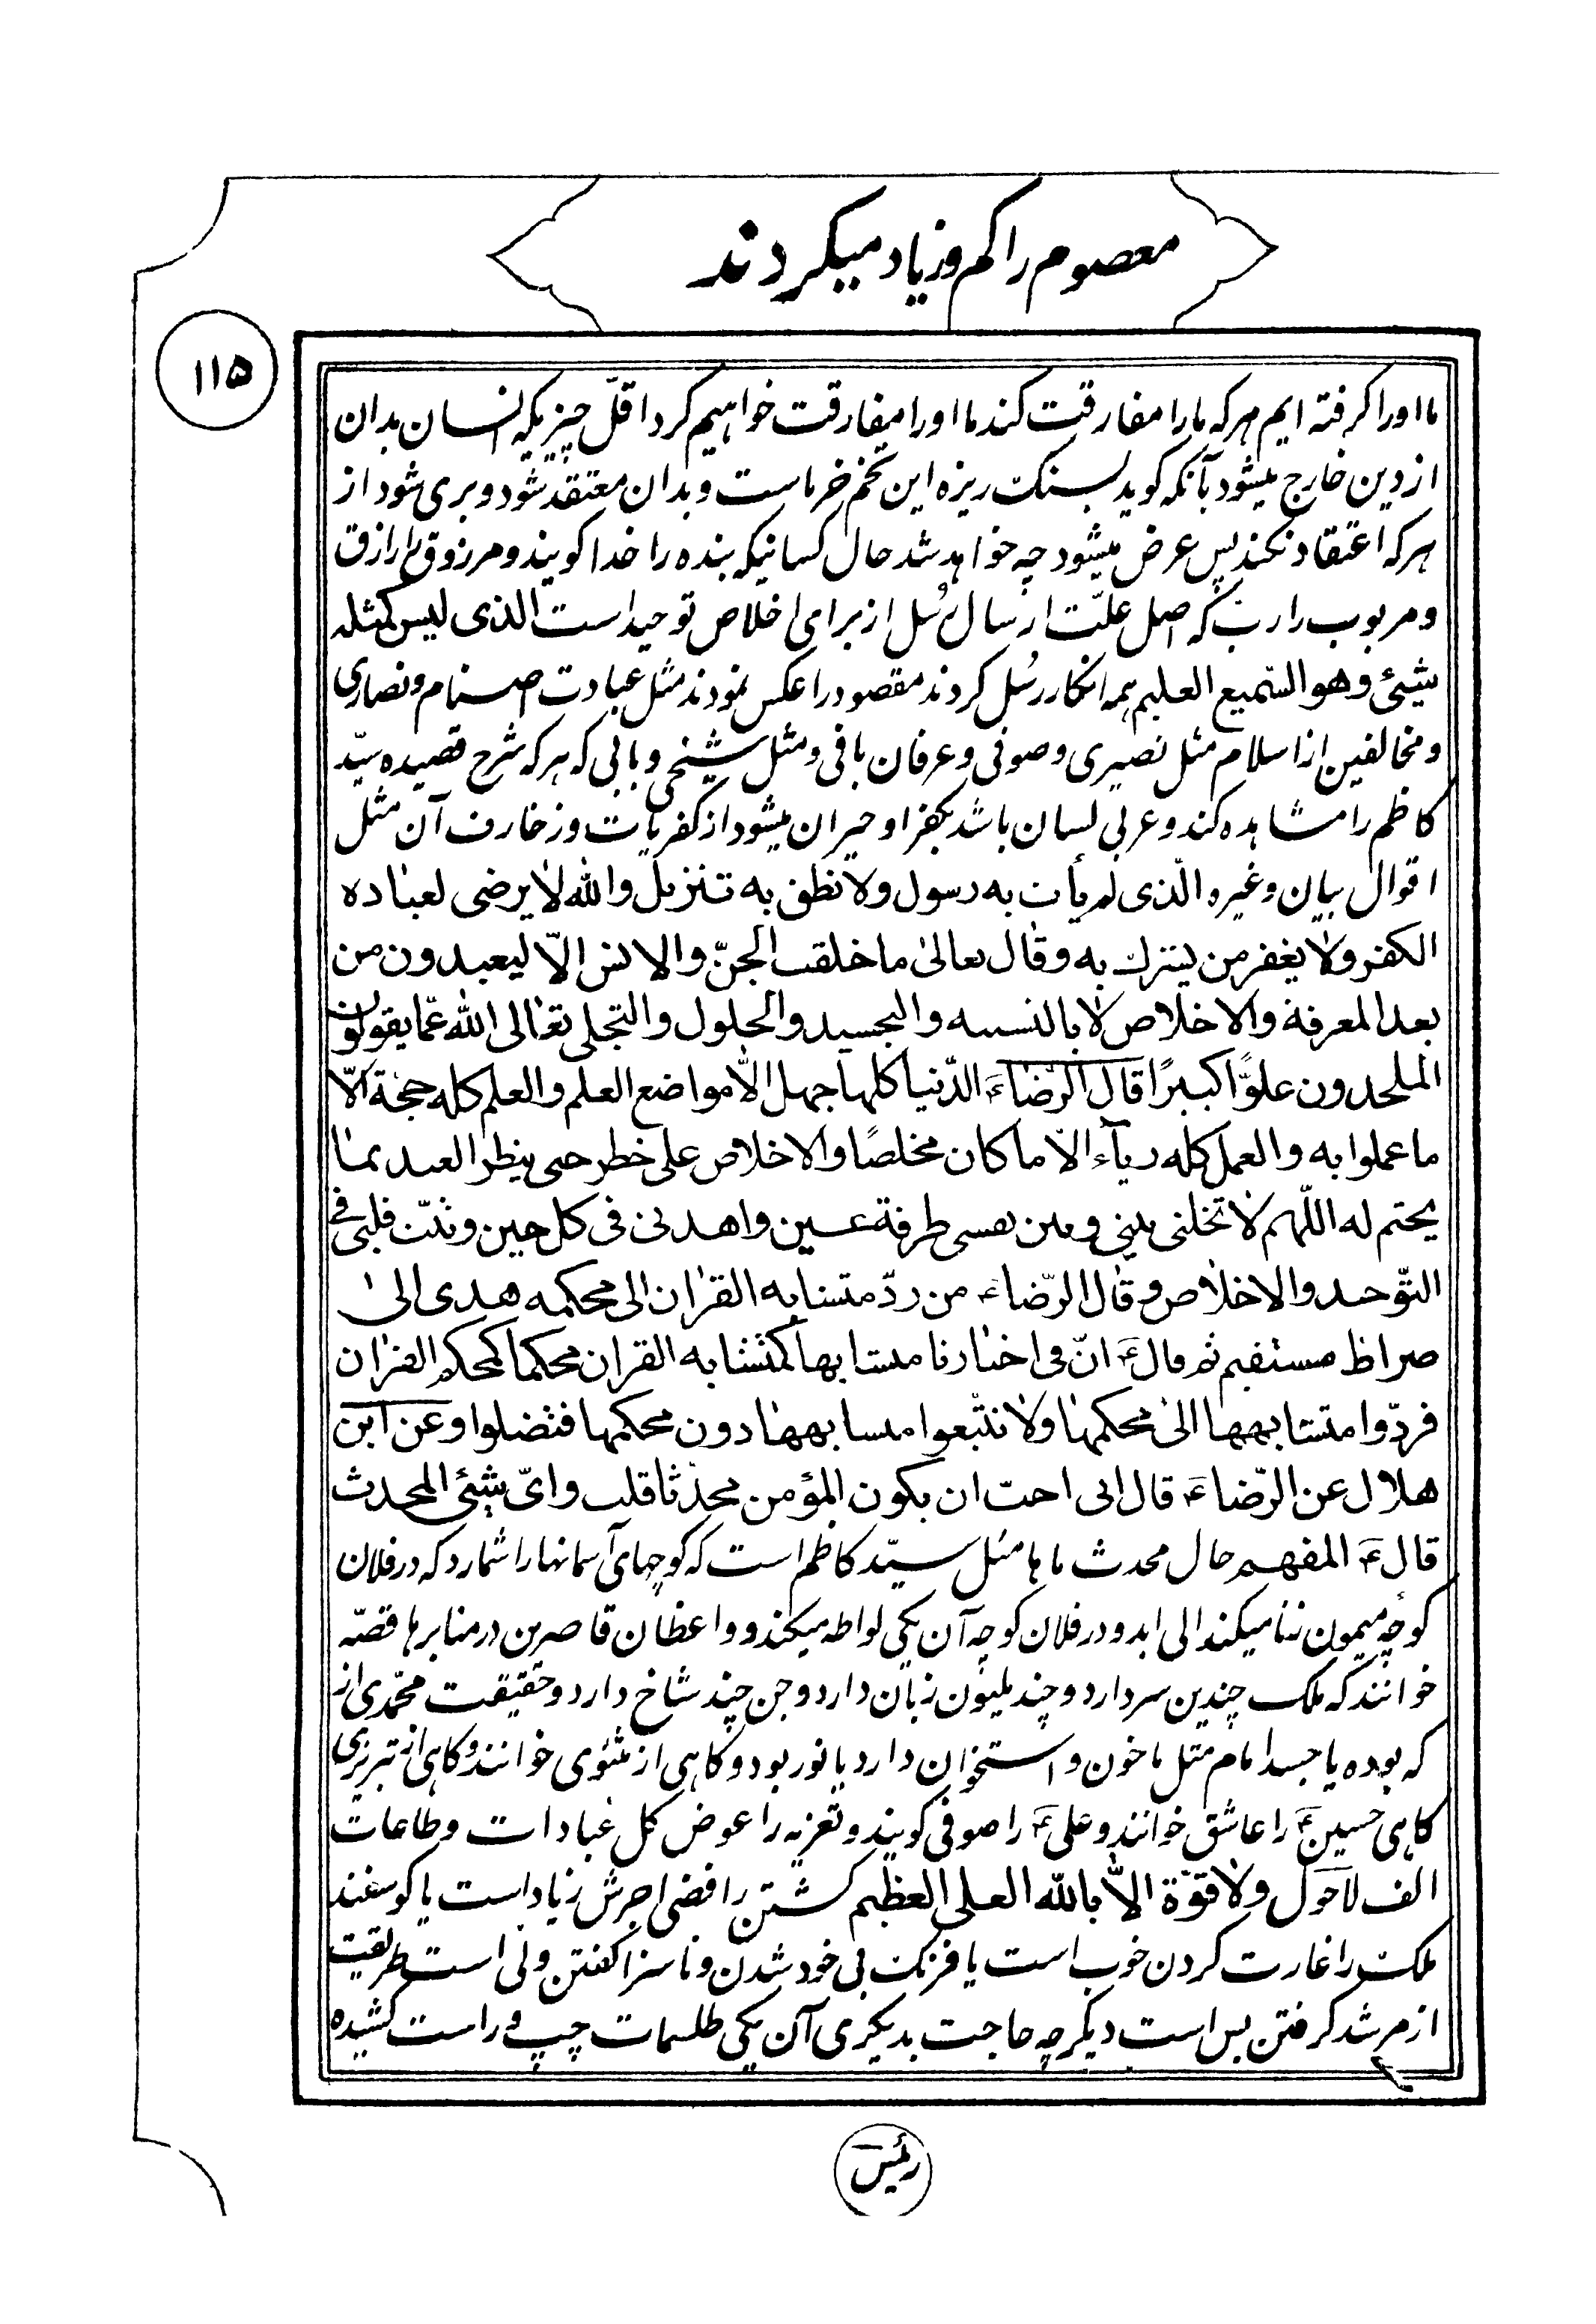 معصوم را کم و زیاد میکردند
۱۱۵
ما او را کرفته ایم هرکه ما را مفارقت کند ما او را مفارقت خواهیم کرد اقلّ چیزیکه انسان بدان
از دین خارج میشود بآنکه کوید بسنک ریزه این تخم خرماست و بدان معتقد شود و بری شود از
هرکه اعتقاد نکند پس عرض میشود چه خواهد شد حال کسانیکه بنده را خدا کویند و مرزوق را رازق
و مربوب را ربّ که اصل علّت ارسال رُسل از برای اخلاص توحید است الذی لیس کمثله
شیئ و هو السّمیع العلیم همه انکار رسُل کردند مقصود را عکس نمودند مثل عبادت اصنام و نصاری
و مخالفین از اسلام مثل نصیری و صوفی و عرفان بافی و مثل شیخی و بابی که هرکه شرح قصیده سیّد
کاظم را مشاهده کند و عربی لسان باشد بکفر او حیران میشود از کفریات و زخارف آن مثل
اقوال بیان و غیره الّذی لم یأت به رسول ولا نطق به تنزیل والله لا یرضی لعباده
الکفر ولا یغفر من یشرک به وقال تعالیٰ ما خلقت الجنّ والانس الّا لیعبدون من
بعد المعرفة والاخلاص لا بالتشبیه والتجسید والحلول والتجلی تعالی الله عمّا یقولون
الملحدون علوًّا کبیرًا قال الرّضاء الدّنیا کلها جهل الّا مواضع العلم والعلم کله حجّة الّا
ما عملوا به والعمل کله ریآء الّا ما کان مخلصًا والاخلاص علی خطر حتی ینظر العبد بما
یختم له اللّهم لا تخلنی بینی وبین نفسی طرفة عین واهدنی فی کل حین وثبّت قلبی فی
التّوحید والاخلاص وقال الرّضاء من ردّ متشابه القرآن الی محکمه هدی الیٰ
صراط مستقیم ثم قال ع انّ فی اخبارنا متشابها کمتشابه القرآن محکما کمحکم القرآن
فردّوا متشابهها الیٰ محکمها ولا تتّبعوا متشابهها دون محکمها فتضلوا وعن ابن
هلال عن الرّضاء ع قال انی احبّ ان یکون المؤمن محدّثا قلت وایّ شیئ المحدث
قال ع المفهم حال محدث ماها مثل سیّد کاظم است که کوچهای آسمانها را شمارد که در فلان
کوچه میمون زنا میکند الی ابد و در فلان کوچه آن یکی لواطه میکند و واعظان قاصرین در منابرها قصّه
خوانند که ملک چندین سر دارد و چند ملیون زبان دارد و جن چند شاخ دارد و حقیقت محمّدی از
که بوده یا جسد امام مثل ما خون و استخوان دارد یا نور بود و کاهی از مثنوی خوانند و کاهی از تبریزی
کاهی حسین ع را عاشق خوانند و علی ع را صوفی کویند و تعزیه را عوض کل عبادات و طاعات
الف لاحول ولا قوّة الّا بالله العلی العظیم کشتن رافضی اجرش زیاد است یا کوسفند
ملک را غارت کردن خوب است یا فرنک بی خود شدن و ناسزا کفتن ولی است طریقت
از مرشد کرفتن بس است دیکر چه حاجت بدیکری آن یکی طلسمات چپ و راست کشیده
رئیس